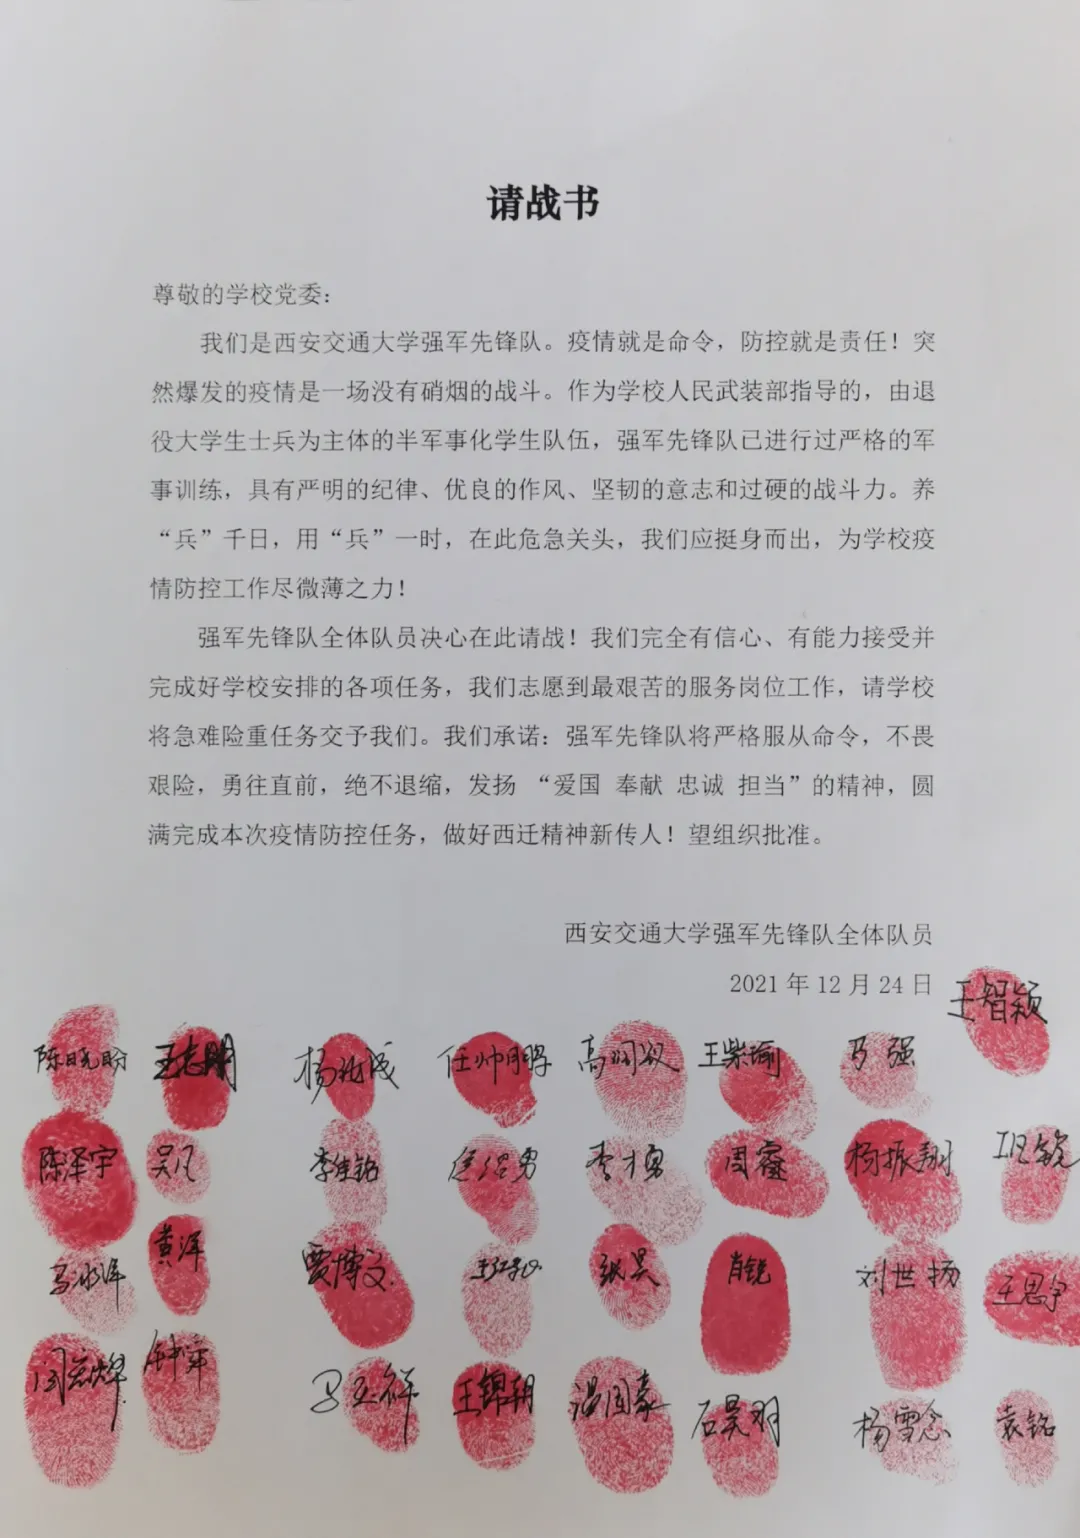 请战书
尊敬的学校党委：
我们是西安交通大学强军先锋队。疫情就是命令，防控就是责任！突
然爆发的疫情是一场没有硝烟的战斗。作为学校人民武装部指导的，由退
役大学生士兵为主体的半军事化学生队伍，强军先锋队已进行过严格的军
事训练，具有严明的纪律、优良的作风、坚韧的意志和过硬的战斗力。养
“兵”千日，用“兵”一时，在此危急关头，我们应挺身而出，为学校疫
情防控工作尽微薄之力！
强军先锋队全体队员决心在此请战！我们完全有信心、有能力接受并
完成好学校安排的各项任务，我们志愿到最艰苦的服务岗位工作，请学校
将急难险重任务交予我们。我们承诺：强军先锋队将严格服从命令，不畏
艰险，勇往直前，绝不退缩，发扬 “爱国 奉献 忠诚 担当”的精神，圆
满完成本次疫情防控任务，做好西迁精神新传人！望组织批准。
西安交通大学强军先锋队全体队员
2021 年 12 月 24 日
王智颖
陈晓盼 王志明 任帅鹏 王紫瑜
陈泽宇 吴凡 李佳铭 李才勇 周睿 杨振翔
黄洋 贾博文 张昊 肖锐 刘世扬 王思宇
王锦朝 温国豪 石昊羽 杨雪念 袁铭